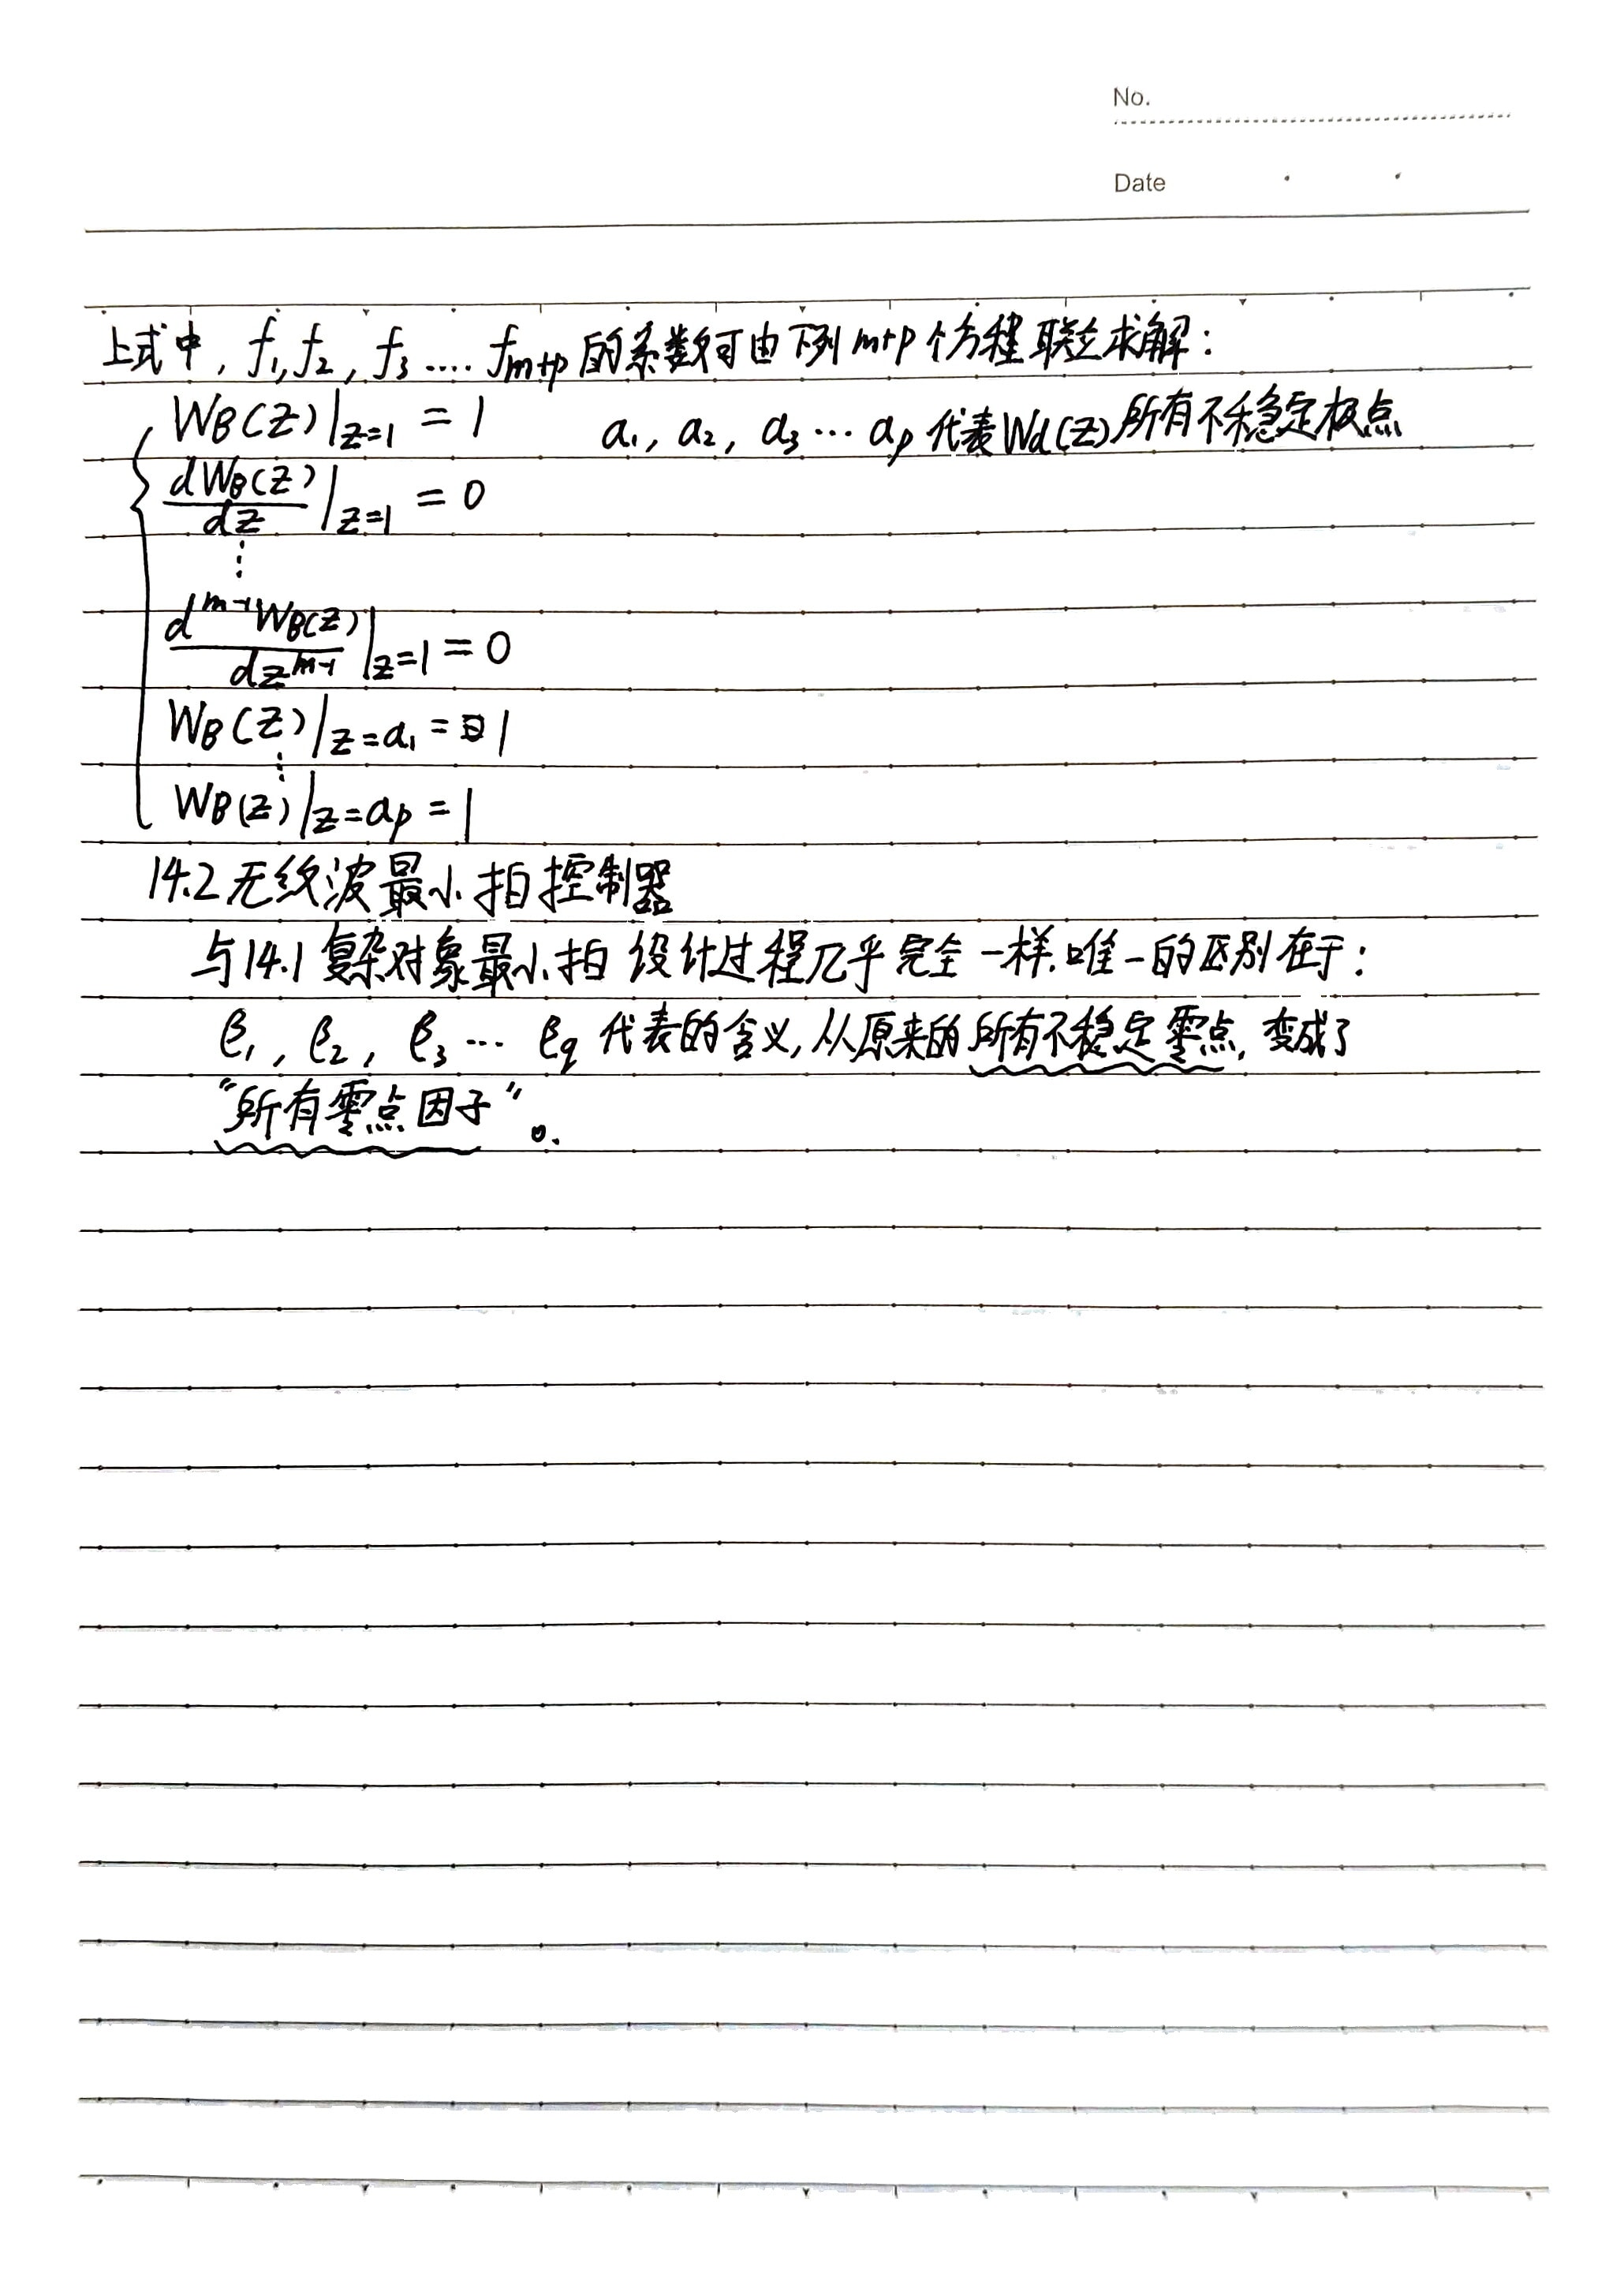 No.
Date
上式中, f₁, f₂, f₃ .... fₘ₊ₚ 的系数可由下列 m+p 个方程联立求解:
W_B(Z)|_{Z=1} = 1    a₁, a₂, a₃ … aₚ 代表Wd(Z)所有不稳定极点
dW_B(Z)/dZ |_{Z=1} = 0
⋮
d^{m-1}W_B(Z)/dZ^{m-1} |_{Z=1} = 0
W_B(Z)|_{Z=a₁} = 1
⋮
W_B(Z)|_{Z=aₚ} = 1
14.2 无纹波最小拍控制器
与14.1 复杂对象最小拍 设计过程几乎完全一样.唯一的区别在于:
β₁, β₂, β₃ … β_q 代表的含义, 从原来的所有不稳定零点, 变成了
“所有零点因子”。